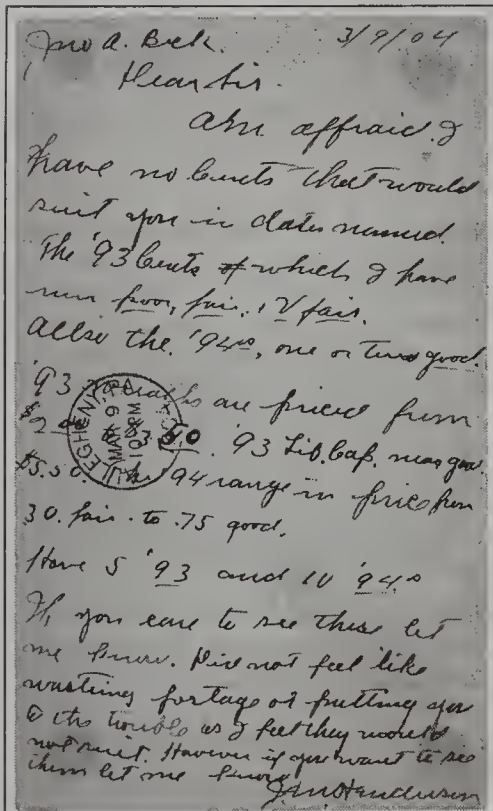 Jno A. Beck. 3/9/04
Dear Sir.
Am affraid I
have no Cents that would
suit you in dates named.
The '93 Cents of which I have
run poor, fair, & V fair.
Allso the '94s, one or two good.
'93 are priced from
$2 to 3.50. '93 Lib. Cap. near good
$5.50. The 94 range in price from
30. fair. to .75 good.
Have 5 '93 and 10 '94s
If you care to see these let
me know. Did not feel like
wasting postage or putting you
to the trouble as I feel they would
not suit. However if you want to see
them let me know
Henderson
ALLEGHENY, PA.
MAR 9
10 PM